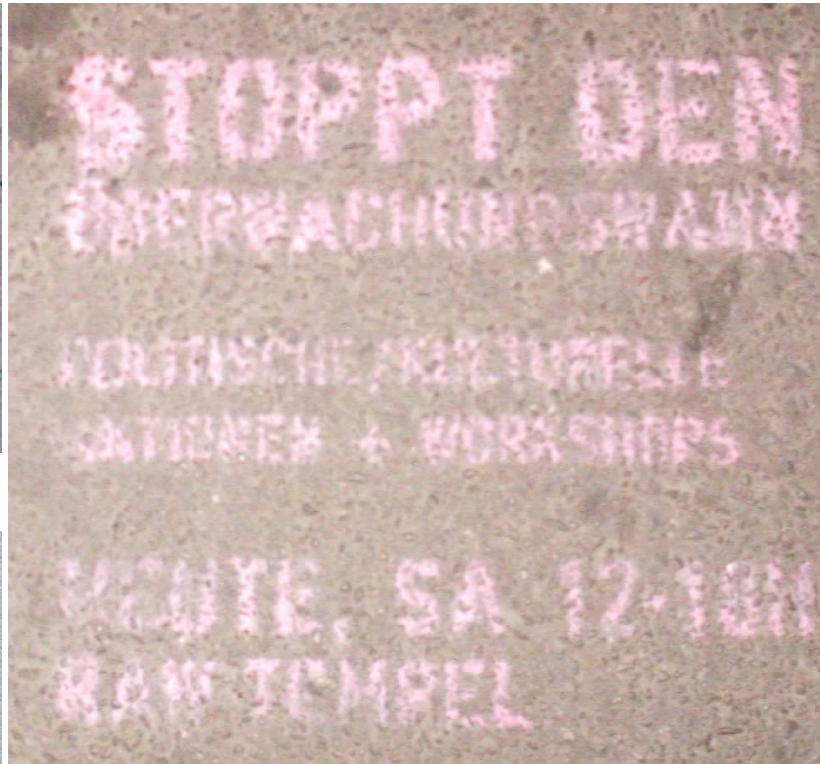 STOPPT DEN
ÜBERWACHUNGSWAHN
POLITISCHE/KULTURELLE
AKTIONEN + WORKSHOPS
HEUTE, SA 12-18H
RAW TEMPEL